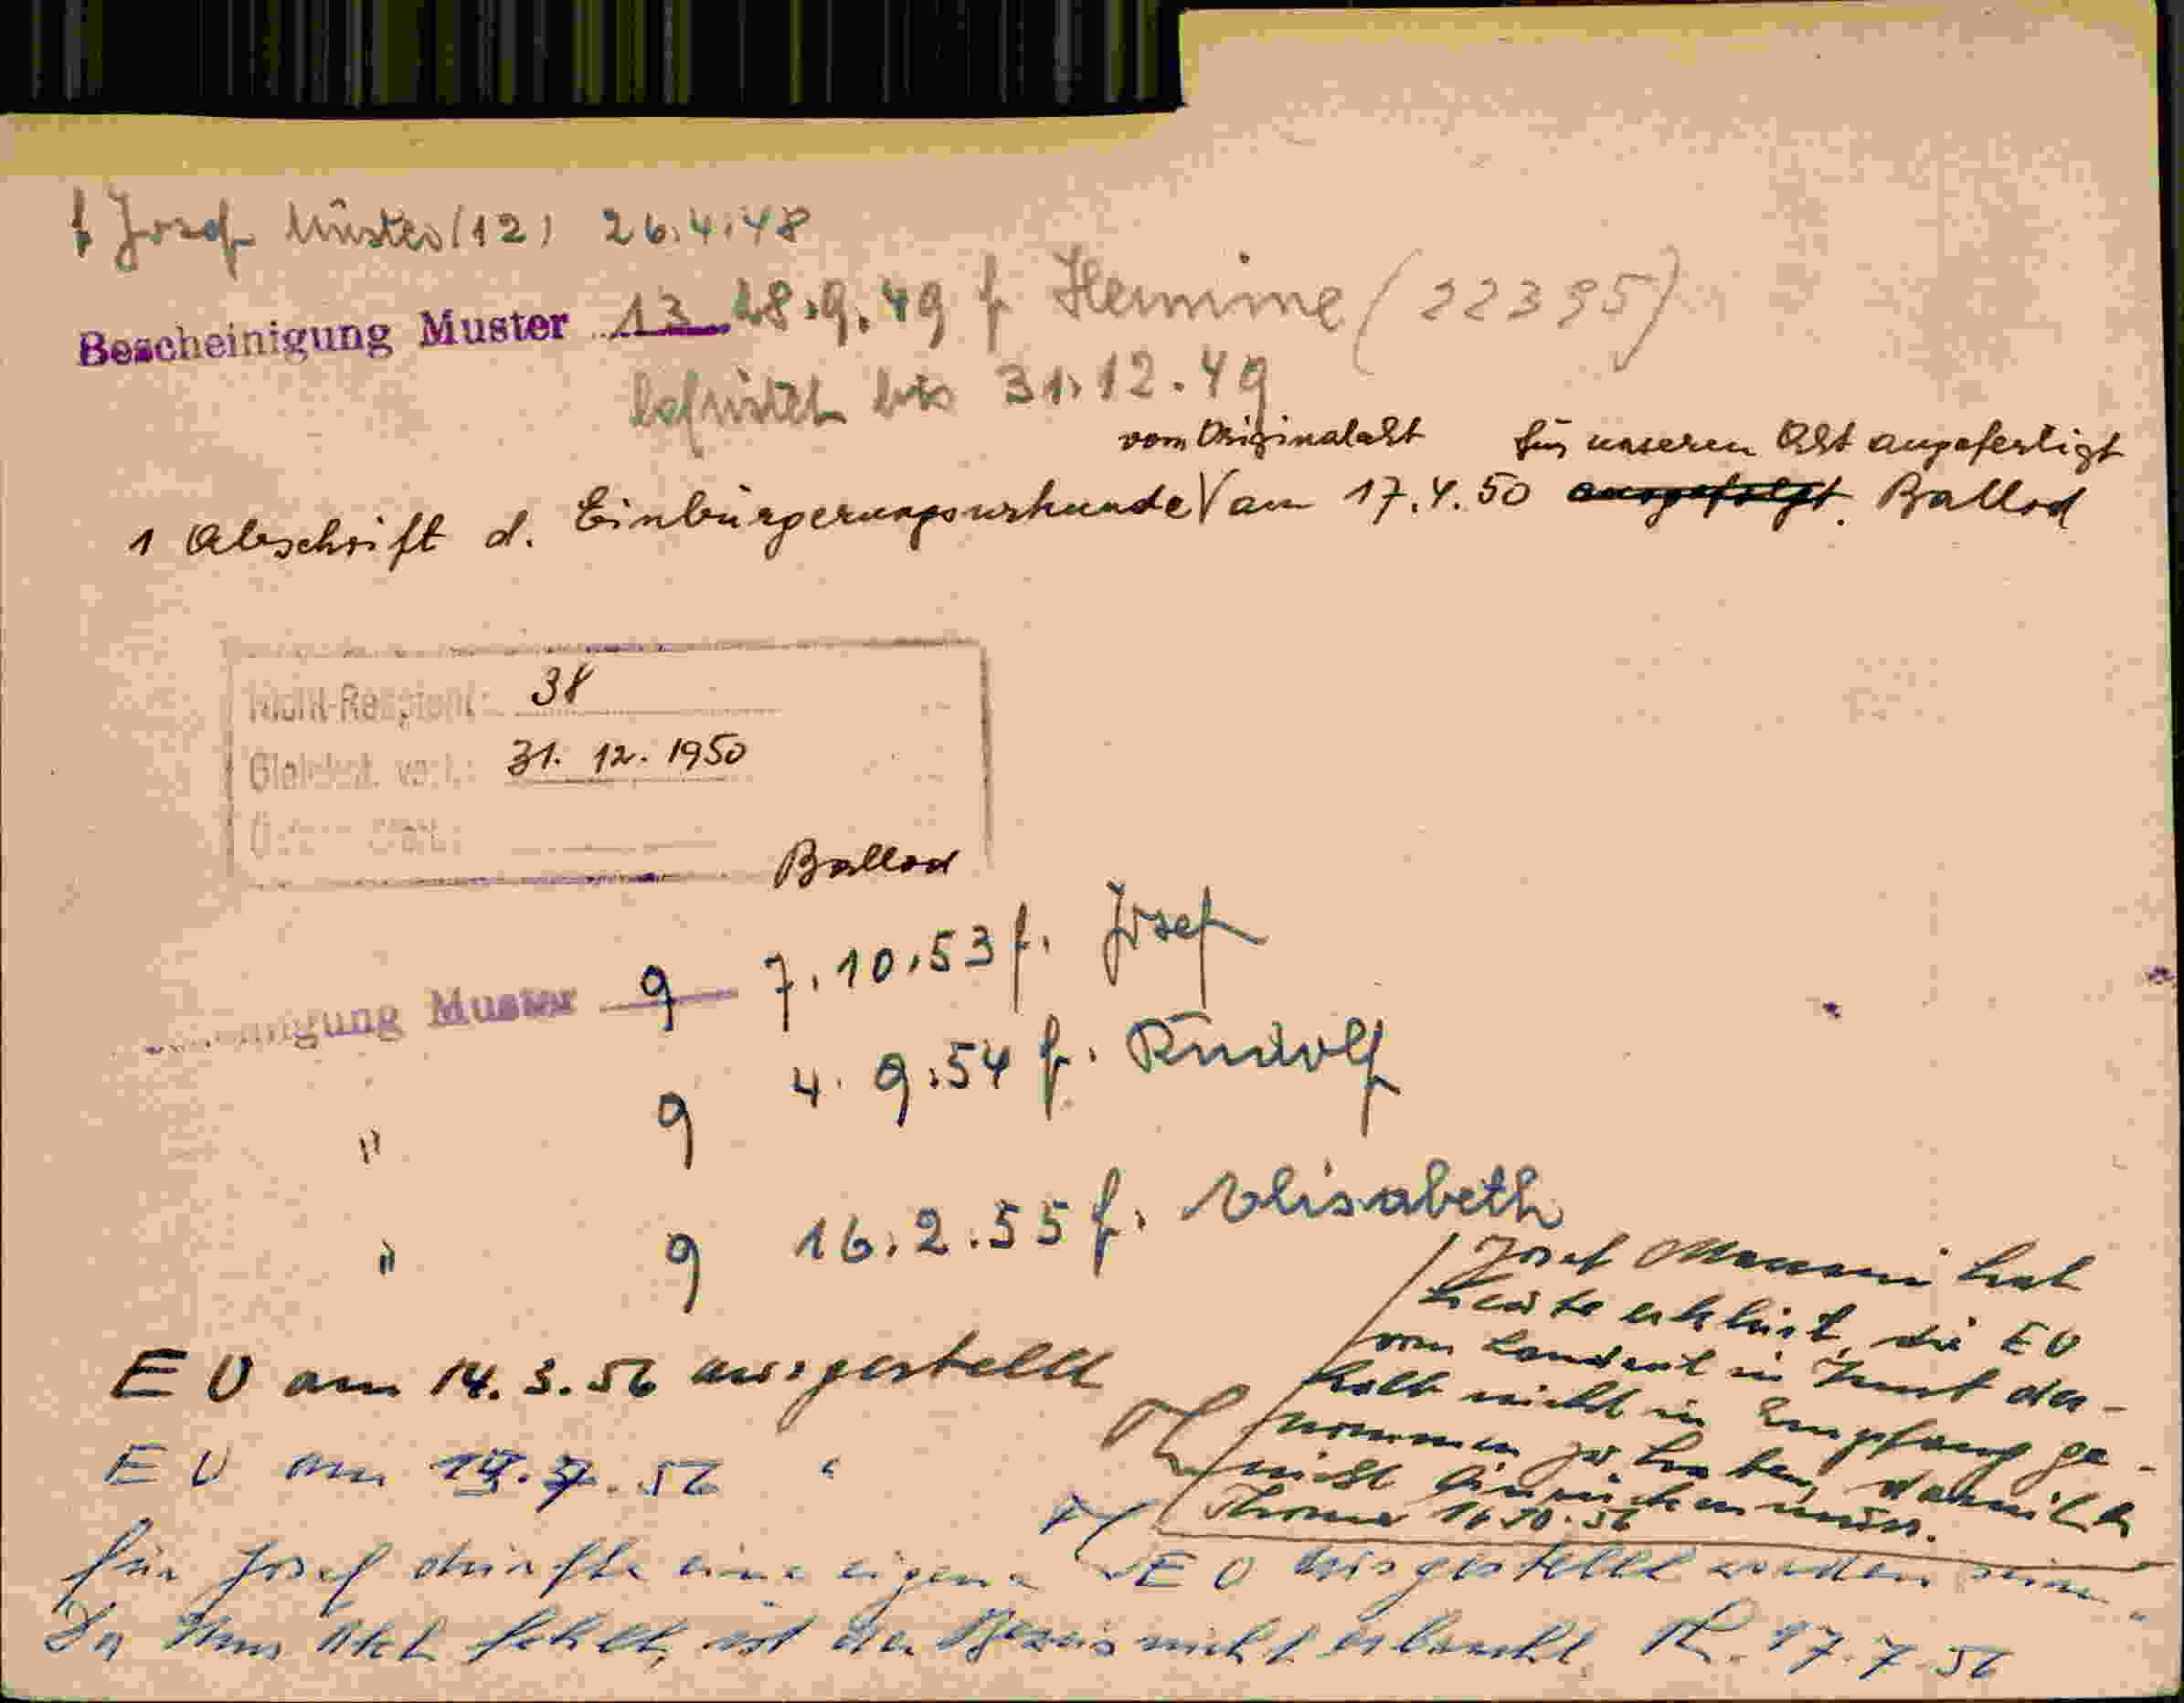 f Josef Muster (12) 26.4.48
Bescheinigung Muster 13 28.9.49 f Hermine (22395)
befristet bis 31.12.49
vom Originalakt für unseren Akt angefertigt
1 Abschrift d. Einbürgerungsurkunde √ am 17.4.50 ausgefolgt. Ballod
Nicht-Recipient: 38
31. 12. 1950
Ballod
Muster 9 7.10.53 f. Josef
" 9 4.9.54 f. Rudolf
" 9 16.2.55 f. Elisabeth
Josef hat
heute erklärt, die EU
vom Landrat in der-
halb nicht in Empfang ge-
nommen zu haben,
nicht muss.
16.10.56
EU am 14.3.56 ausgestellt
EU am .56 "
für Josef dürfte eine eigene EU ausgestellt worden sein
Da Akt fehlt, ist der Beweis nicht erbracht. 17.7.56